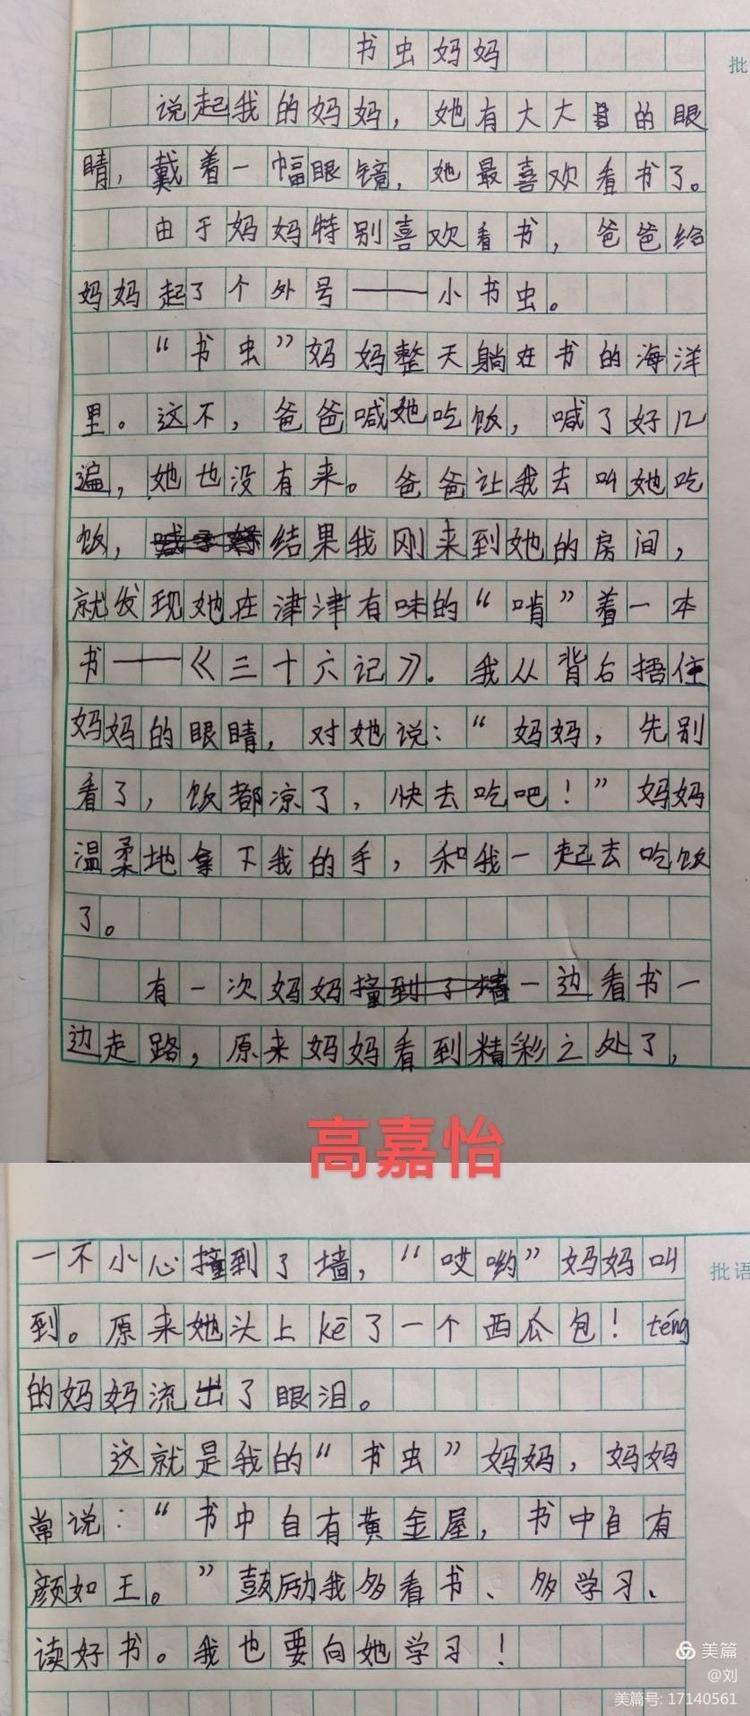 书虫妈妈
批
说起我的妈妈，她有大大的眼
睛，戴着一幅眼镜，她最喜欢看书了。
由于妈妈特别喜欢看书，爸爸给
妈妈起了个外号——小书虫。
“书虫”妈妈整天躺在书的海洋
里。这不，爸爸喊她吃饭，喊了好几
遍，她也没有来。爸爸让我去叫她吃
饭，结果我刚来到她的房间，
就发现她在津津有味的“啃”着一本
书——《三十六记》。我从背后捂住
妈妈的眼睛，对她说：“妈妈，先别
看了，饭都凉了，快去吃吧！”妈妈
温柔地拿下我的手，和我一起去吃饭
了。
有一次妈妈撞到了墙一边看书一
边走路，原来妈妈看到精彩之处了，
高嘉怡
一不小心撞到了墙，“哎哟”妈妈叫
批语
到。原来她头上kē了一个西瓜包！téng
的妈妈流出了眼泪。
这就是我的“书虫”妈妈，妈妈
常说：“书中自有黄金屋，书中自有
颜如王。”鼓励我多看书、多学习、
读好书。我也要向她学习！
美篇
@刘
美篇号: 17140561